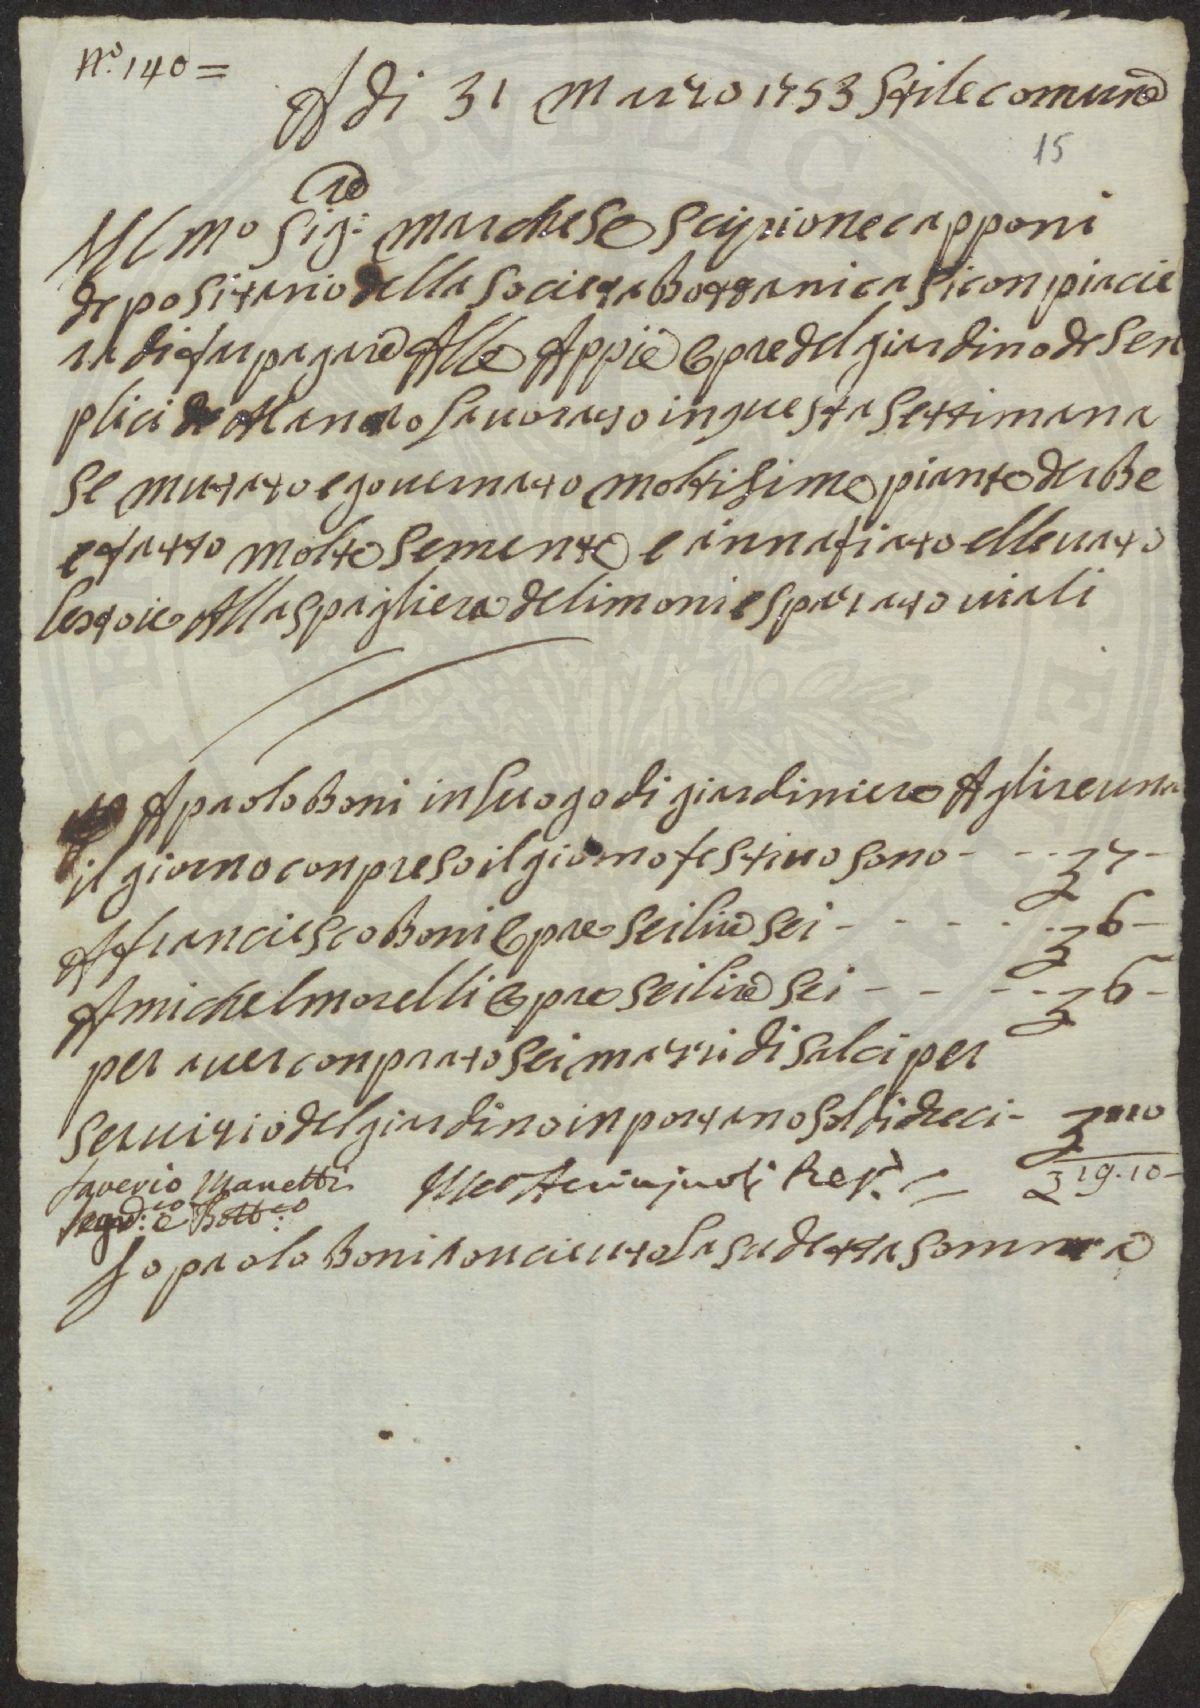 N.º 140 =
A dì 31 Marzo 1753 Stile comune
15
Ill mo Sig.re marchese Scipione capponi
depositario della Società Bottanica si conpiacie
rà di far pagare Alle Appiè Opre del giardino de Sen
plici de Hanno lavorato in questa Settimana
Se mutato e governato moltisime piante derbe
e fatto molte Semente e innafiato ellevato
le stoie Alla Spagliera de limoni e spazato viali
A paolo Boni in luogo di giardiniere A lire una
il giorno conpreso il giorno festivo sono - - - £ 7 -
A franciesco Boni Opre Sei lire Sei - - - - - £ 6 -
A michel morelli Opre Sei lire Sei - - - - - £ 6 -
per aver conprato Sei mazzi di Salci per
Servizio del giardino inportano Soldi dieci - £ 10
Saverio Manetti £ 19.10 -
Segret.rio e Bott.co
Io paolo Boni o riceuto La sudetta somma